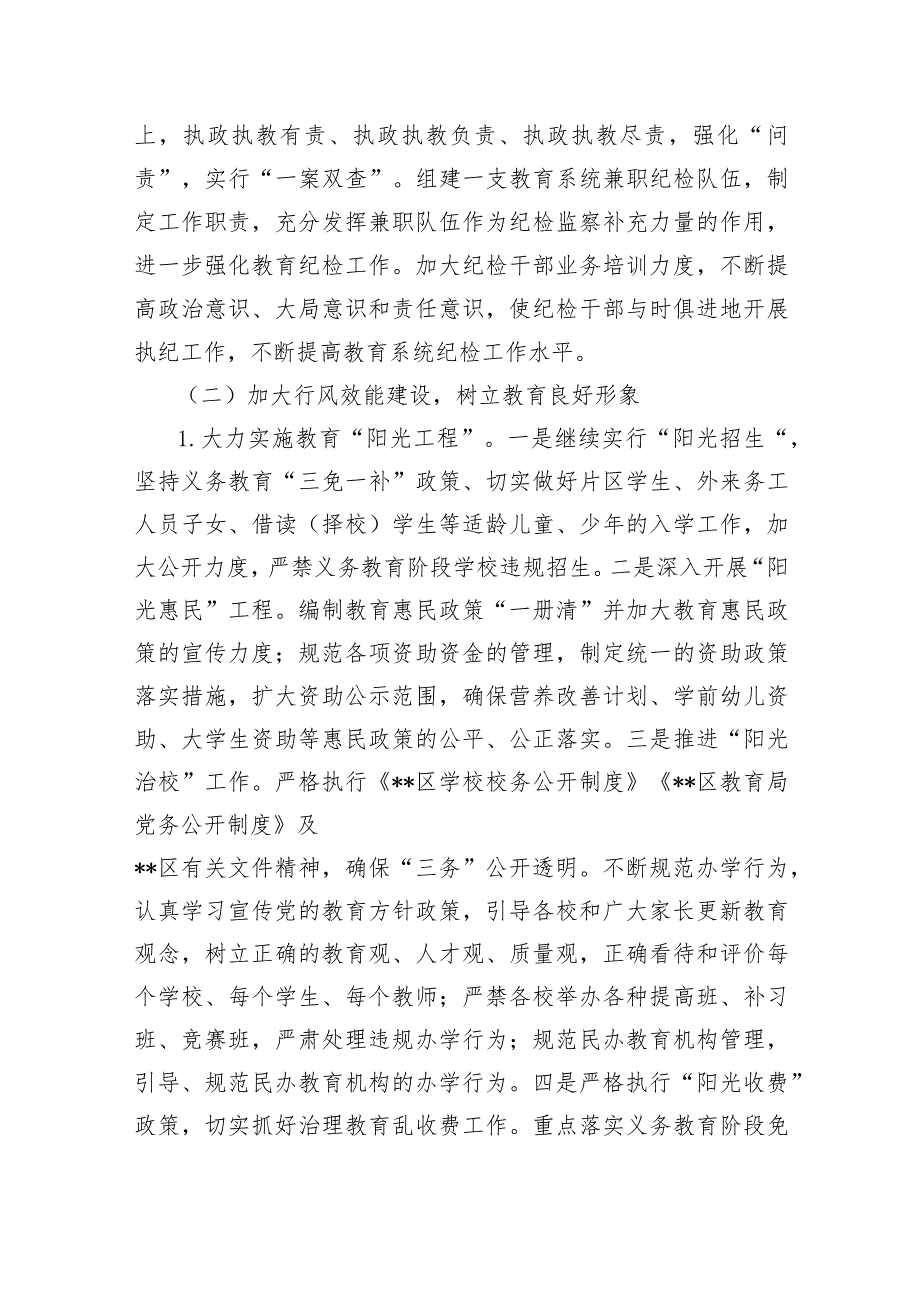 上，执政执教有责、执政执教负责、执政执教尽责，强化“问
责”，实行“一案双查”。组建一支教育系统兼职纪检队伍，制
定工作职责，充分发挥兼职队伍作为纪检监察补充力量的作用，
进一步强化教育纪检工作。加大纪检干部业务培训力度，不断提
高政治意识、大局意识和责任意识，使纪检干部与时俱进地开展
执纪工作，不断提高教育系统纪检工作水平。
（二）加大行风效能建设，树立教育良好形象
1.大力实施教育“阳光工程”。一是继续实行“阳光招生“，
坚持义务教育“三免一补”政策、切实做好片区学生、外来务工
人员子女、借读（择校）学生等适龄儿童、少年的入学工作，加
大公开力度，严禁义务教育阶段学校违规招生。二是深入开展“阳
光惠民”工程。编制教育惠民政策“一册清”并加大教育惠民政
策的宣传力度；规范各项资助资金的管理，制定统一的资助政策
落实措施，扩大资助公示范围，确保营养改善计划、学前幼儿资
助、大学生资助等惠民政策的公平、公正落实。三是推进“阳光
治校”工作。严格执行《**区学校校务公开制度》《**区教育局
党务公开制度》及
**区有关文件精神，确保“三务”公开透明。不断规范办学行为，
认真学习宣传党的教育方针政策，引导各校和广大家长更新教育
观念，树立正确的教育观、人才观、质量观，正确看待和评价每
个学校、每个学生、每个教师；严禁各校举办各种提高班、补习
班、竞赛班，严肃处理违规办学行为；规范民办教育机构管理，
引导、规范民办教育机构的办学行为。四是严格执行“阳光收费”
政策，切实抓好治理教育乱收费工作。重点落实义务教育阶段免